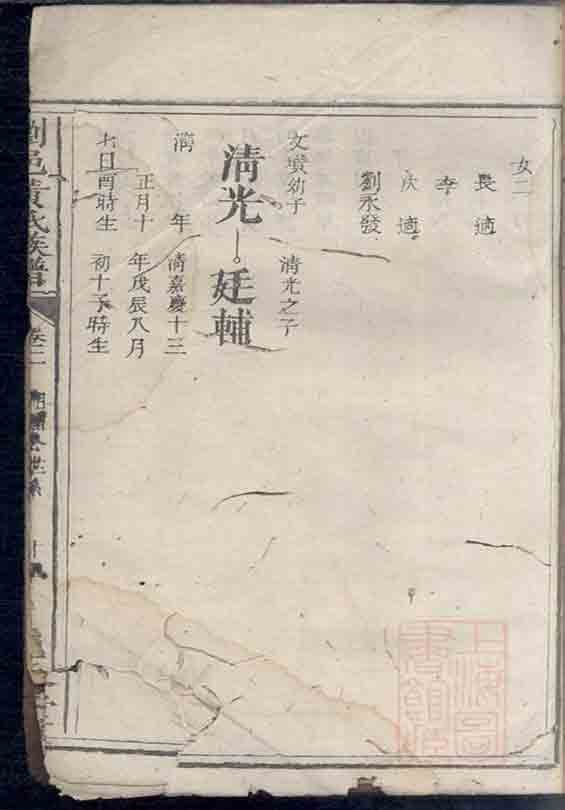 女二
長適
李
次適
劉永發
文墳幼子 清光之子
清光 廷輔
清 年 清嘉慶十三
正月十 年戊辰八月
七日酉時生 初十子時生
劉邑黃氏族譜
卷二
上海圖書館藏